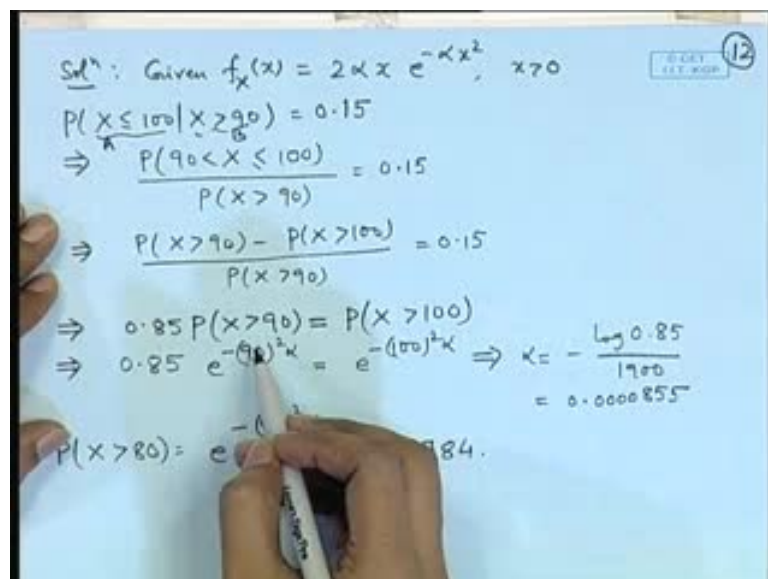 Solⁿ : Given f_X(x) = 2αx e^{-αx²}, x>0
12
P(X ≤ 100 | X ≥ 90) = 0.15
A B
⇒ P(90 < X ≤ 100) / P(X > 90) = 0.15
⇒ P(X > 90) - P(X > 100) / P(X > 90) = 0.15
⇒ 0.85 P(X > 90) = P(X > 100)
⇒ 0.85 e^{-(90)²α} = e^{-(100)²α} ⇒ α = - log 0.85 / 1900
= 0.0000855
P(X > 80) = e^{-( 84.